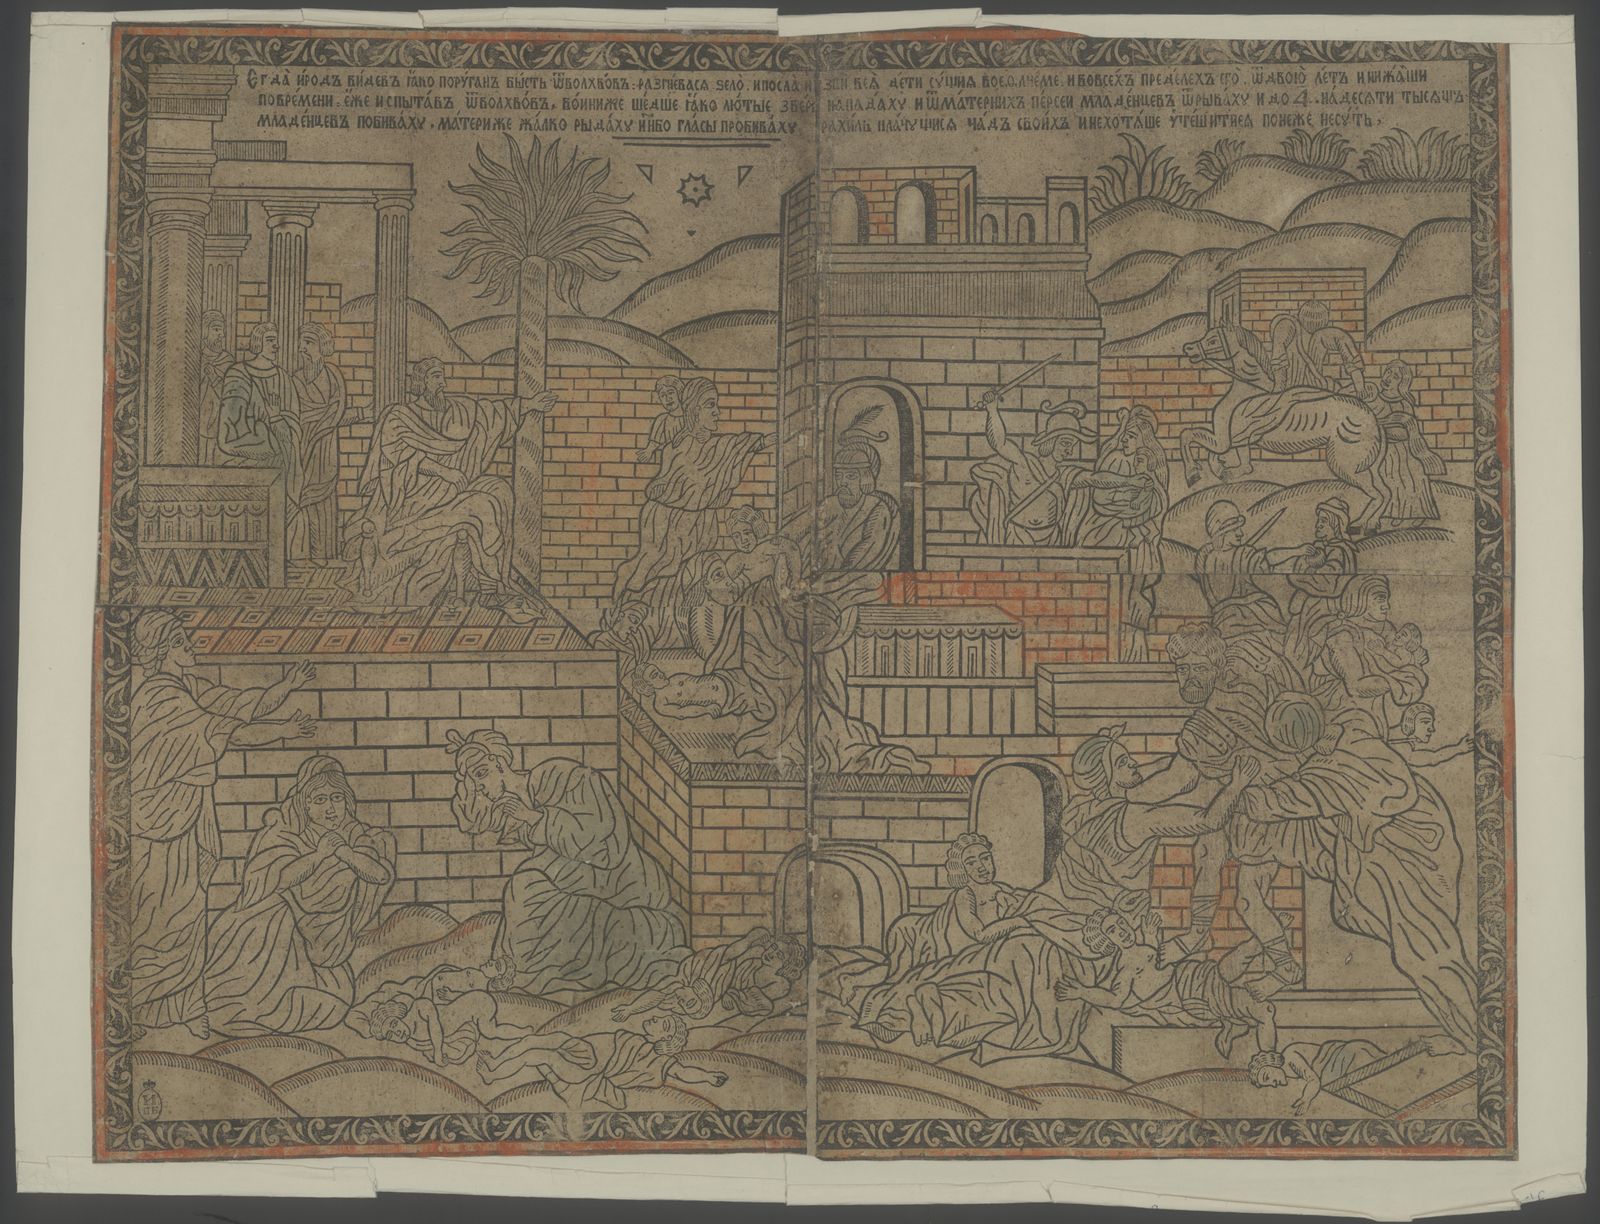 Єгда̀ и́родъ видевъ ꙗ҆́ко порꙋ́ганъ бы́сть ѿволхво́въ. разгне́васѧ ѕело̀. и посла̀ и҆зби всѧ̀ дети сꙋ́щиѧ воѳ҆леѐме. и вовсе́хъ пределехъ єго̀. ѿдвою̀ ле́тъ и нижа́йши
повре́мени. є҆́же испыта́въ ѿволхво́въ, во́иниже ше́дше ꙗ҆́ко лю́тые звери нападахꙋ и ѿма́тернихъ пе́рсеи младе́нцевъ ѿрыва́хꙋ и до 4. надесѧти тысѧщъ.
младе́нцевъ побива́хꙋ. ма́териже жа́лко рыда́хꙋ и не́бо гла́сы пробива́хꙋ рахи́ль пла́чꙋщисѧ ча́дъ свои́хъ и нехотѧ́ше ᲂу҆те́шитисѧ поне́же не сꙋ́ть,